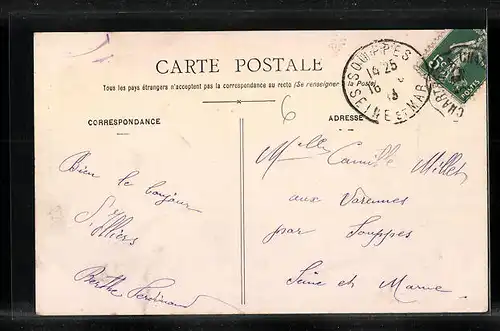 CARTE POSTALE
Tous les pays étrangers n'acceptent pas la correspondance au recto (Se renseigner à la Poste)
CORRESPONDANCE
ADRESSE
6
SOUPPES
14 25
16
13
SEINE ET MAR
5c
POSTES
Bien le bonjour
Berthe Ferdinand
Melle Camille Millet
aux Varennes
par Souppes
Seine et Marne